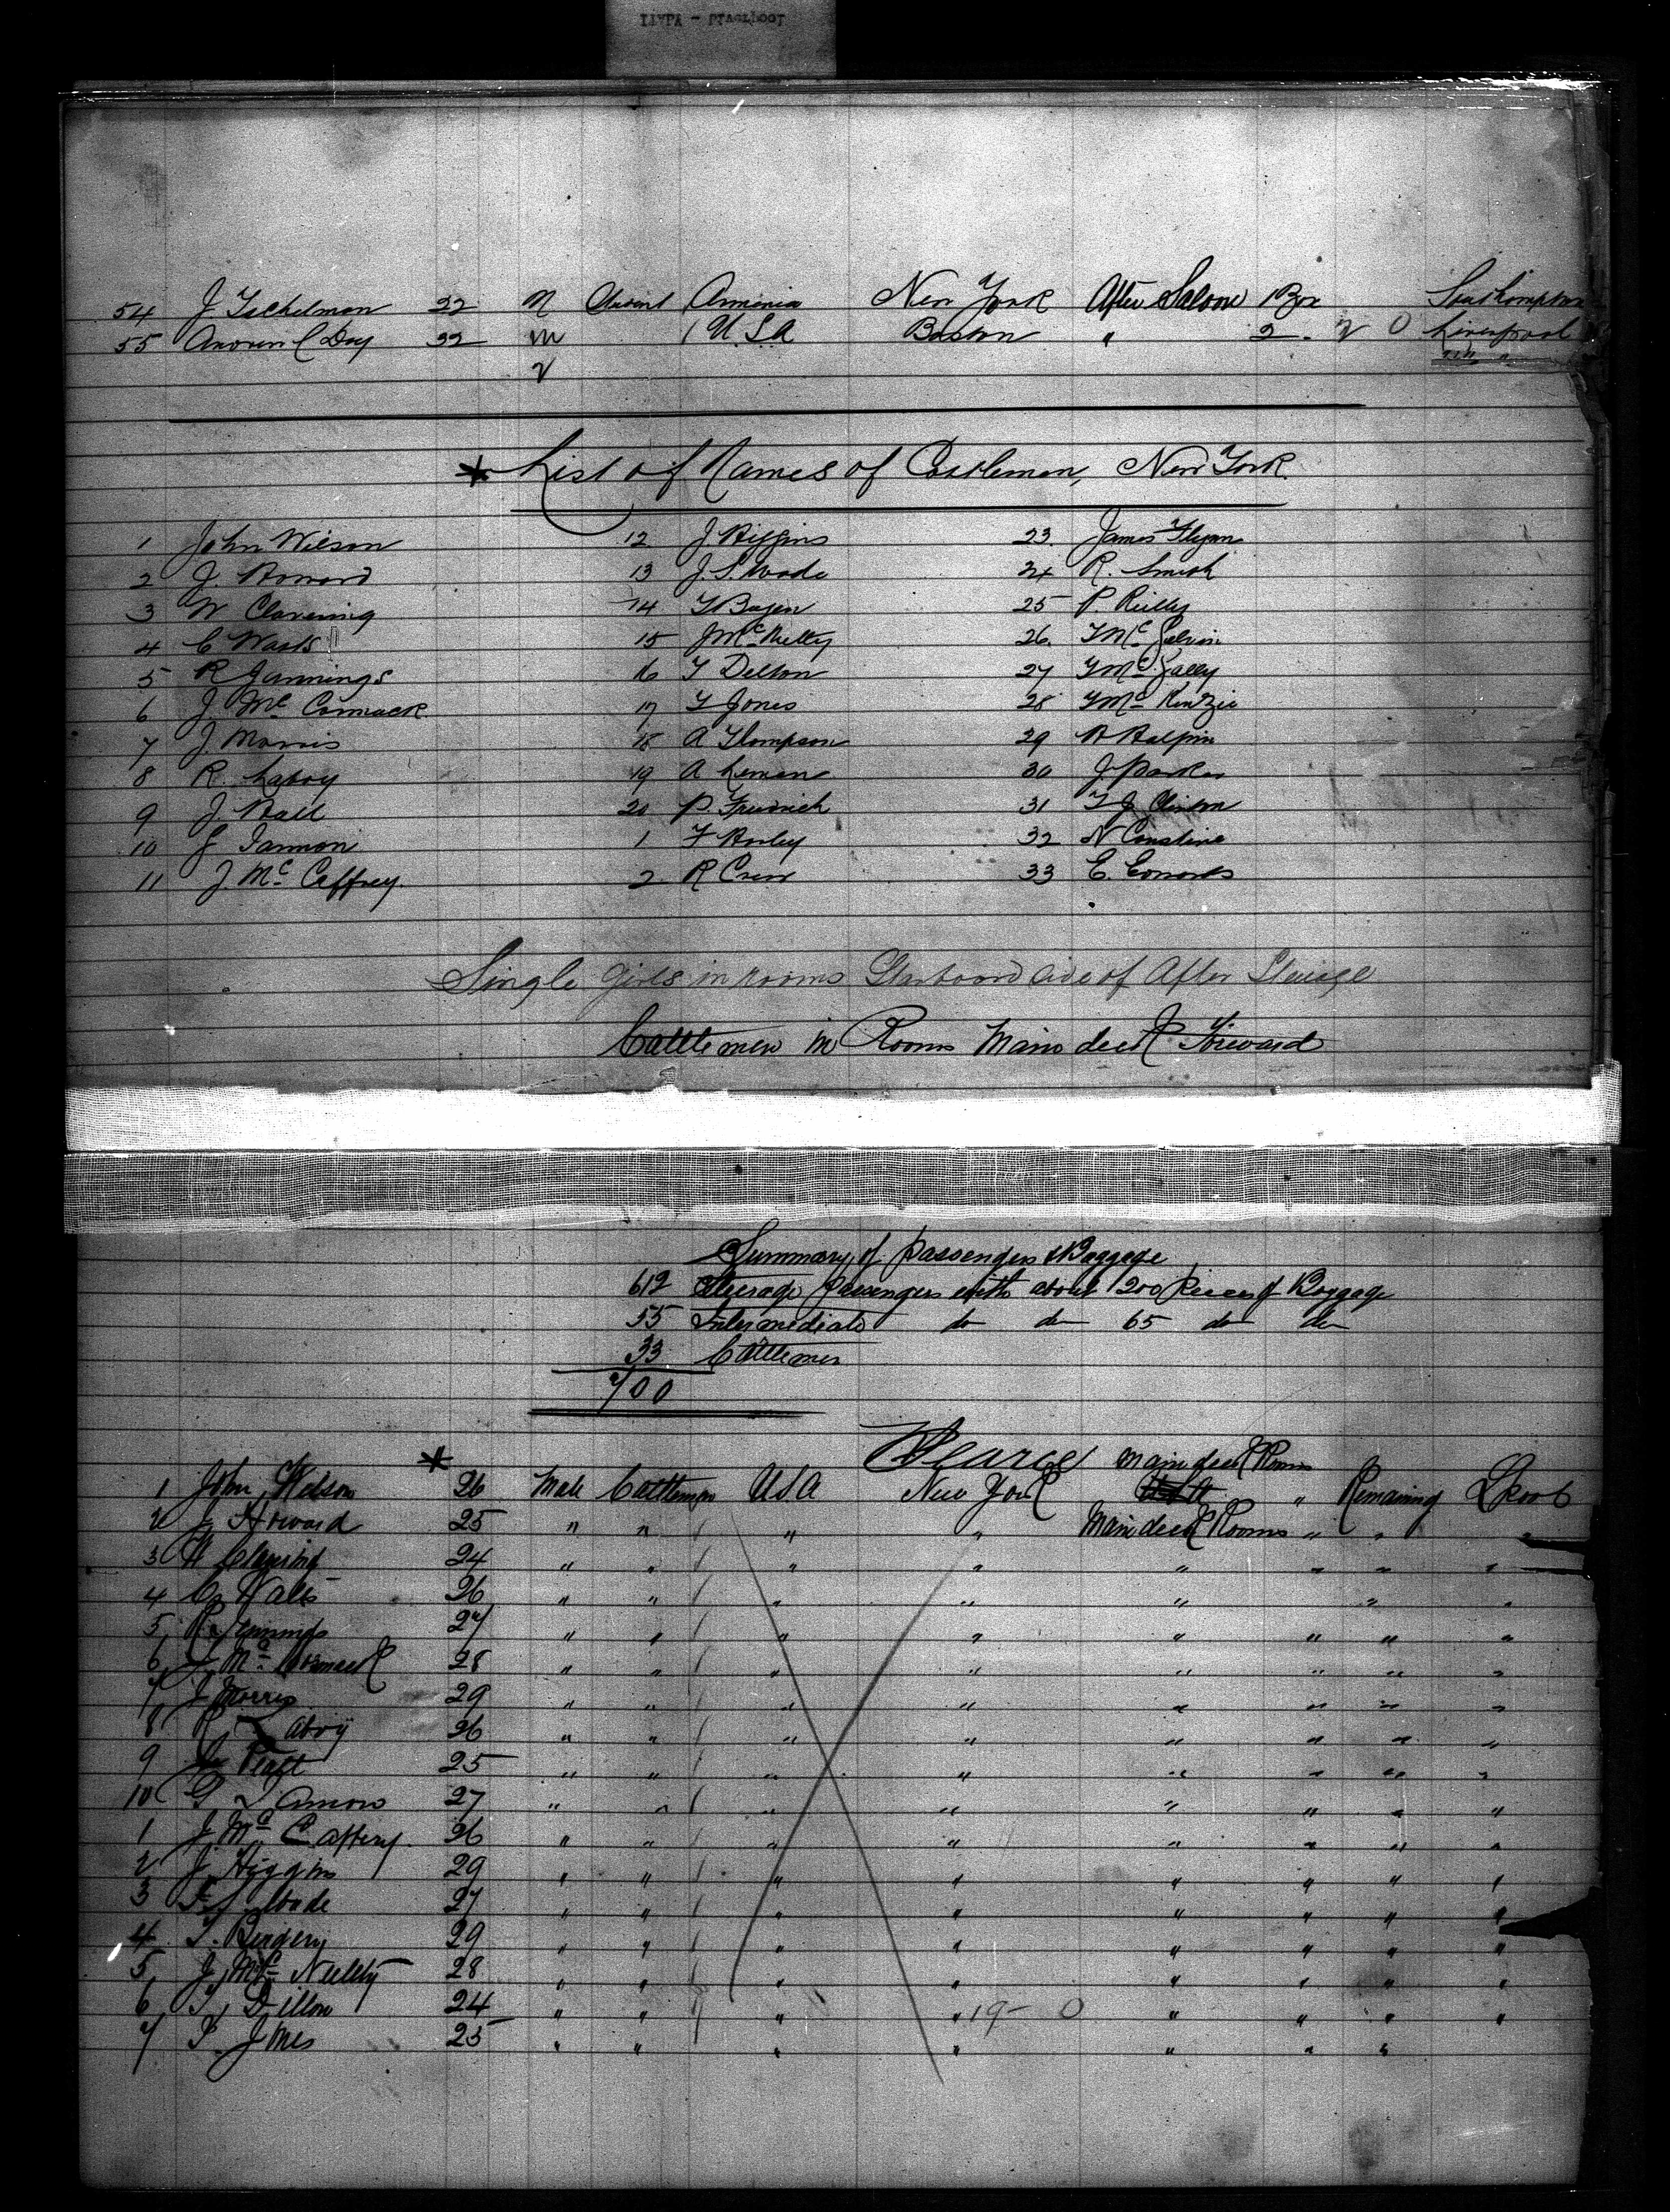 54 J. 22 M Armenia New York After Saloon 1 Box Southampton
55 Andrew C Day 32 m U.S.A Boston " 2 Liverpool
* List of Names of Cattlemen, New York.
1 John Wilson 12 J Higgins 23 James Flynn
2 J. Howard 13 J. S. Wade 24 R. Smith
3 W Clavering 14 T 25 P. Reilly
4 C Watts 15 J Mc Neilty 26. T Mc
5 R Jennings 16 T Delton 27 T Mc
6 J Mc Cormack 17 T Jones 28 T Mc Kenzie
7 J. Morris 18 A Thompson 29 H Halpin
8 R. Laboy 19 A Leman 30 J. Parker
9 J. 20 P. 31 T J Clinton
10 G 1 F Hanley 32 N
11 J. Mc Caffrey. 2 R Crew 33 E. Edwards
Single Girls in rooms Starboard side of After Steerage
Cattlemen in Rooms Main deck Forward
Summary of Passengers & Baggage
612 Steerage Passengers with about 200 Pieces of Baggage
55 Intermediate do do 65 do do
33 Cattlemen
700
Pearce main deck Rooms
* 1 John Wilson 26 Male Cattleman USA New York " Remaining L'pool
2 J Howard 25 " " " " Main deck Rooms " " "
3 W Clavering 24 " " " " " " " "
4 C Watts 26 " " " " " " "
5 R Jennings 27 " " " " " " " "
6 J Mc Cormack 28 " " " " " " " "
7 J Morris 29 " " " " " " " "
8 R Laboy 26 " " " " " " " "
9 25 " " " " " " " "
10 G 27 " " " " " " " "
1 J Mc Caffery. 26 " " " " " " " "
2 J Higgins 29 " " " " " " " "
3 S. Wade 27 " " " " " " " "
4 T. 29 " " " " " " " "
5 J Mc Neilty 28 " " " " " " " "
6 T. Dillon 24 " " " " 19 - 0 " " " "
7 T. Jones 25 " " " " " " "